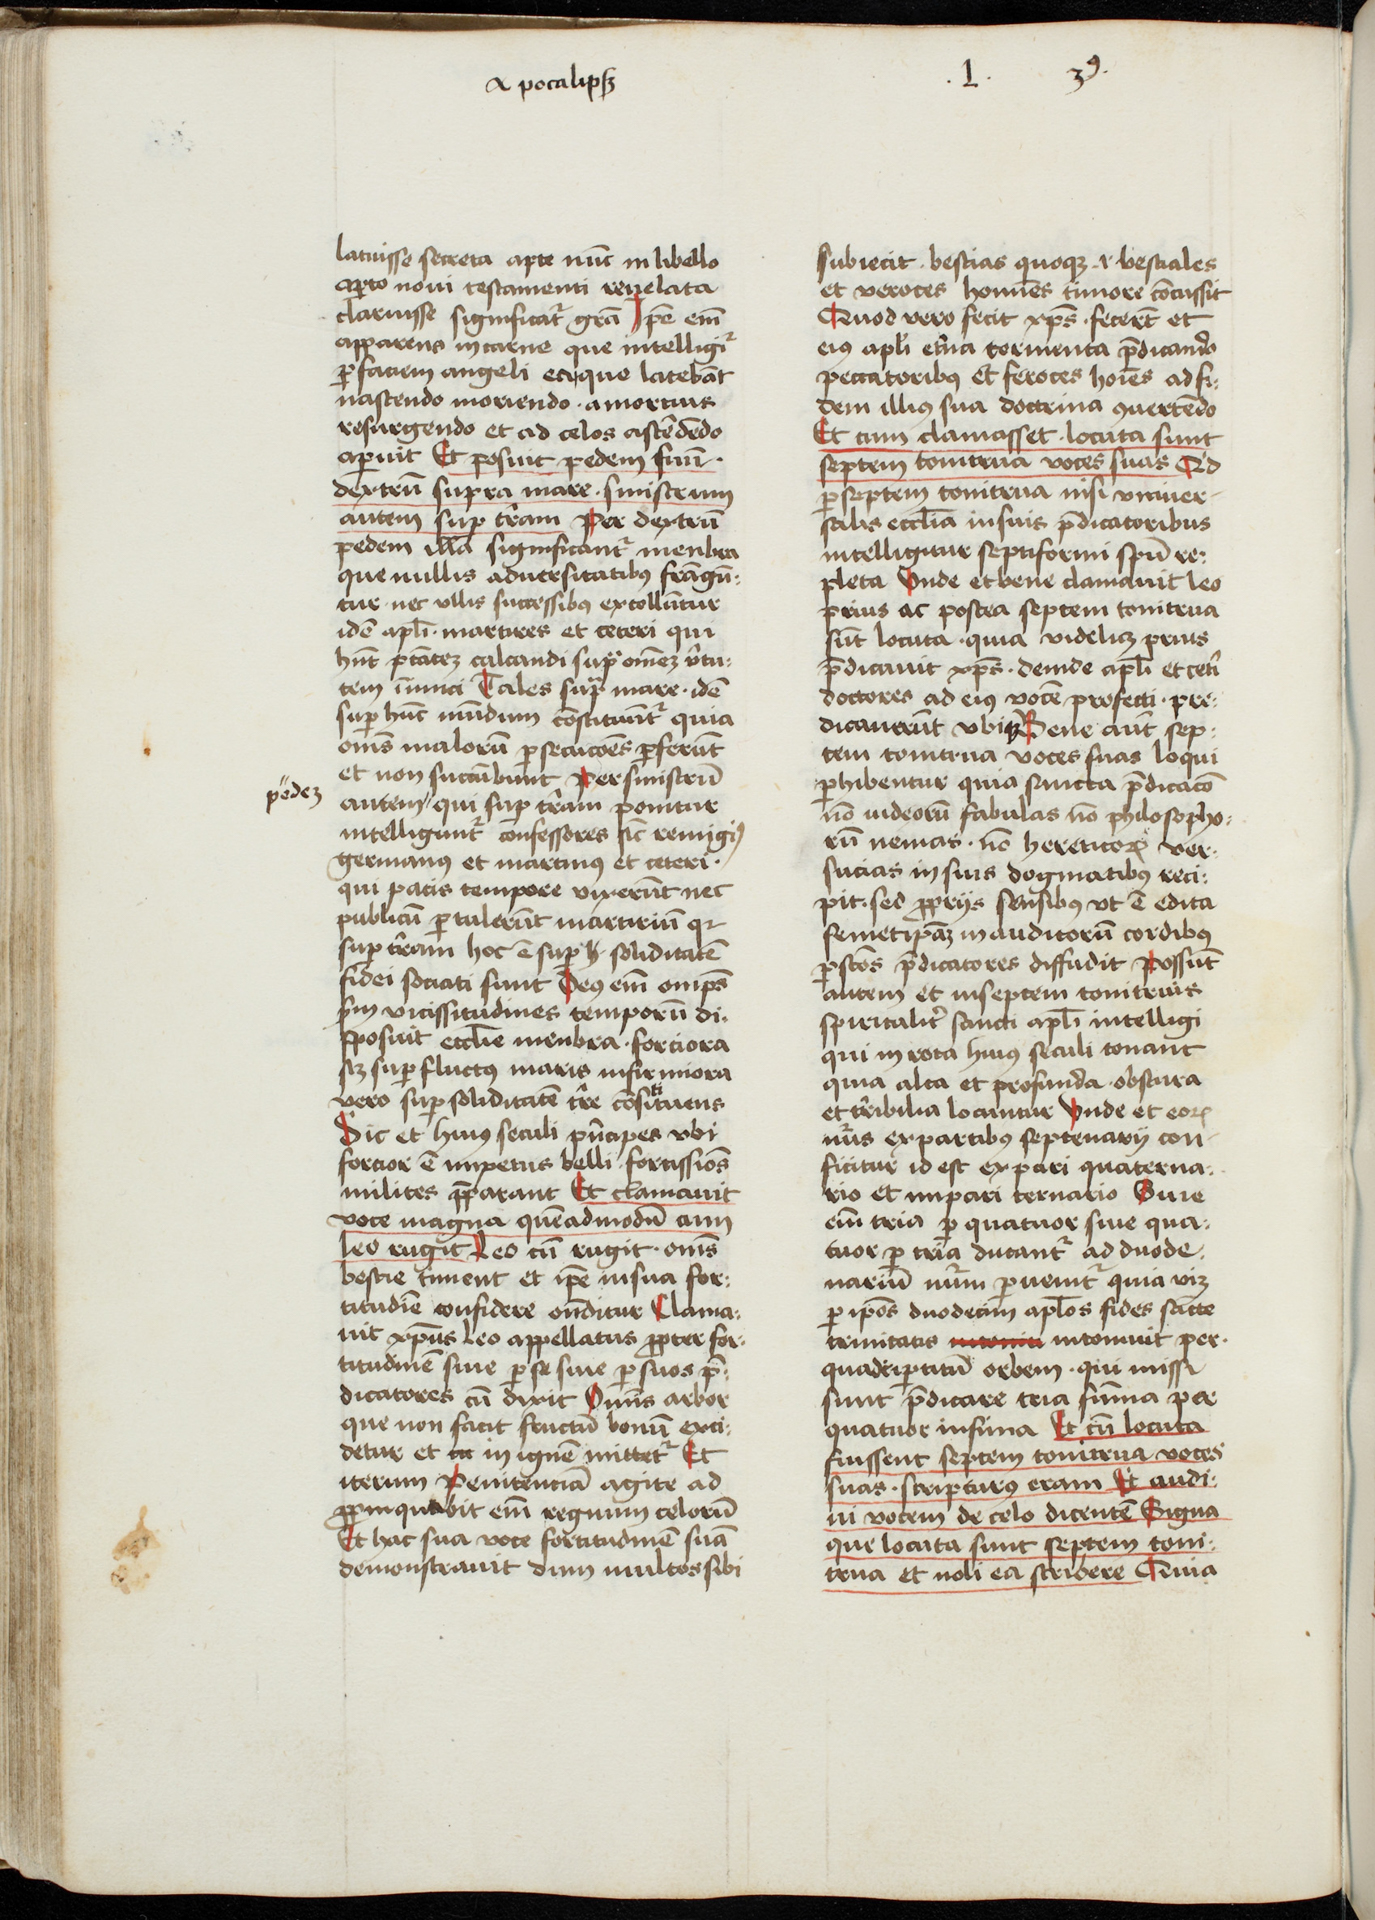 Apocalipsz
.l. 39.
latuisse secreta aperte nūc in libello
aꝑto noui testamenti reuelata
claruisse significat᷑ grā̄ Ipē em̄
apparens in carne que intelligi᷑
ꝑ faciem angeli ea que latebāt
nascendo moriendo · a mortuis
resurgendo et ad celos ascēdēdo
aꝑuit Et posuit pedem suū ·
dextrū supra mare · sinistrum
autem suꝑ t̄ram Per dextrū
pedem illa significant᷑ menbra
que nullis aduersitatibꝰ frāgū:
tur nec vllis successibus extollūtur
idē apl̄i · martires et ceteri qui
hn̄t ptātez calcandi supͣ omēz v̄tu:
tem īimici Tales supͣ mare · idē
suꝑ hūc mūdum cōstituūt᷑ quia
om̄s malorū ꝑsecucōēs ꝑferūt
et non succūbunt Per sinistrū
pedez
autem qui suꝑ t̄ram ponitur
intelligunt᷑ confessores sic remigiꝰ
germanꝰ et martinꝰ et ceteri ·
qui pacis tempore vixerūt nec
publicū ꝑtulerūt martiriū qꝛ
suꝑ t̄ram hoc ē suꝑ soliditatē
fidei sociati sunt Deꝰ em̄ omp̄s
ẜm vicissitudines temporū di:
sposuit eccl̄ie menbra · forciora
sz suꝑ fluctꝰ maris infirmiora
vero suꝑ soliditatē t̄re cōstituens
Sic et huiꝰ seculi pn̄cipes vbi
forcior ē impetus belli · fortissiōs
milites p̄parant Et clamauit
voce magna quēadmodū cum
leo rugit Leo cū rugit · om̄s
bestie timent et ip̄e in sua for:
titudiē confidere on̄ditur Clama:
uit xp̄us leo appellatus ꝓpter for:
titudinē siue ꝑ se siue ꝑ suos p̄:
dicatores cū dixit Omnis arbor
que non facit fructū bonū exci:
detur et in ignē mittet᷑ Et
iterum Penitenciā agite ad
ꝓpinquabit em̄ regnum celorū
Et hac sua voce fortitudinē suā
demonstrauit dum multos sibi
subiecit · bestias quoqz ⁊ bestiales
et veroces homīes timore cōcussit
Quod vero fecit xp̄s · fecerūt et
eiꝰ apl̄i et̄na tormenta p̄dicando
peccatoribꝰ Et feroces hoīes ad fi:
dem illiꝰ sua doctrina ꝯuertēdo
Et cum clamasset · locuta sunt
septem tonitrua voces suas Qd
ꝑ septem tonitrua nisi vniuer-
salis eccl̄ia in suis p̄dicatoribus
intelligitur septiformi spū re:
pleta Unde et bene clamauit leo
prius ac postea septem tonitrua
sūt locuta · quia videlicz prius
p̄dicauit xp̄s · deinde apl̄i et cet̄i
doctores ad eiꝰ vocē profecti · pre:
dicauerūt vbiqz Bene aūt sep:
tem tonitrua voces suas loqui
ꝑhibentur quia sancta p̄dicacō
nō iudeorū fabulas nō philosopho:
rū nenias · nō hereticoꝝ ver:
sucias in suis dogmatibꝰ reci:
pit · sed ꝓprijs sensibus vt ē edita
semetip̄az in auditorū cordibꝰ
ꝑ sc̄os p̄dicatores diffudit Possūt
autem et in septem tonitruis
spiritalit̄ sancti apl̄i intelligi
qui in rota huiꝰ seculi tonant
quia alta et profunda · obscura
et t̄ribilia locuntur Unde et eoꝝ
nūs ex partibus septenarij con-
ficitur id est ex pari quaterna:
rio et impari ternario Siue
em̄ tria ꝑ quatuor siue qua:
tuor ꝑ tria ducant᷑ ad duode:
nariū num̄ ꝑuenit᷑ quia viz
ꝑ ip̄os duodecim apl̄os fides sācte
trinitatis intonuit per ·
quadripertitū orbem · qui missi
sunt p̄dicare tria sūma per
quatuor infima Et cū locuta
fuissent septem tonitrua voces
suas · scripturꝰ eram Et audi:
ui vocem de celo dicentē Signa
que locuta sunt septem toni:
trua et noli ea scribere Quia